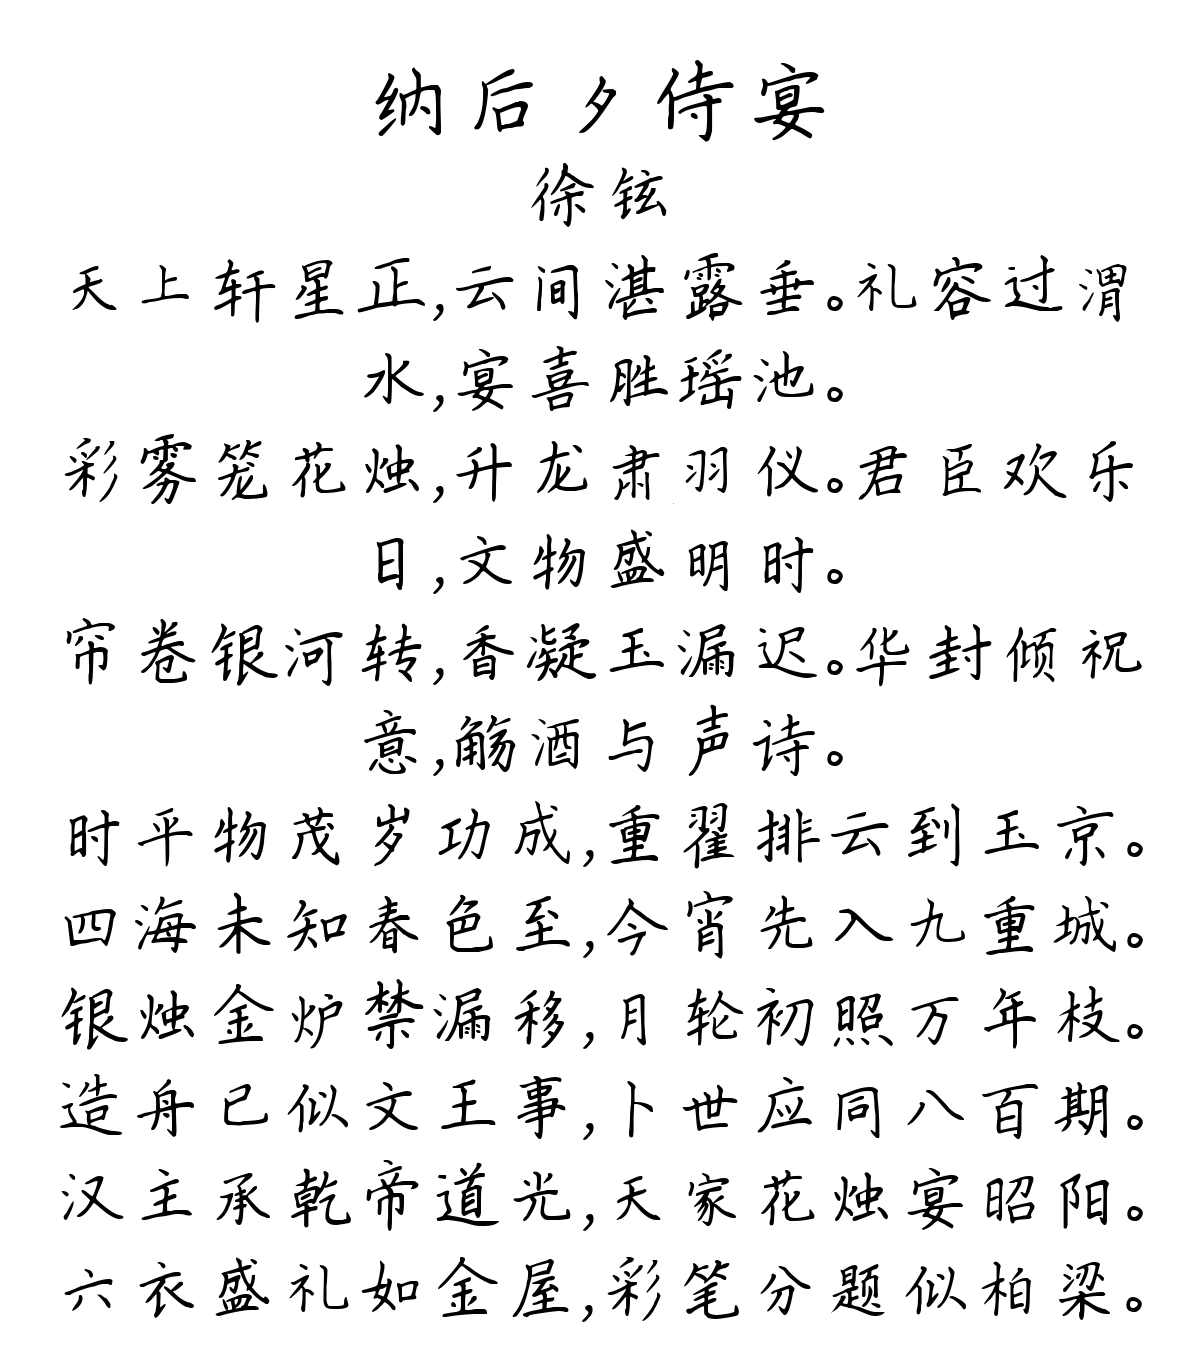 纳后夕侍宴
徐铉
天上轩星正,云间湛露垂。礼容过渭
水,宴喜胜瑶池。
彩雾笼花烛,升龙肃羽仪。君臣欢乐
日,文物盛明时。
帘卷银河转,香凝玉漏迟。华封倾祝
意,觞酒与声诗。
时平物茂岁功成,重翟排云到玉京。
四海未知春色至,今宵先入九重城。
银烛金炉禁漏移,月轮初照万年枝。
造舟已似文王事,卜世应同八百期。
汉主承乾帝道光,天家花烛宴昭阳。
六衣盛礼如金屋,彩笔分题似柏梁。